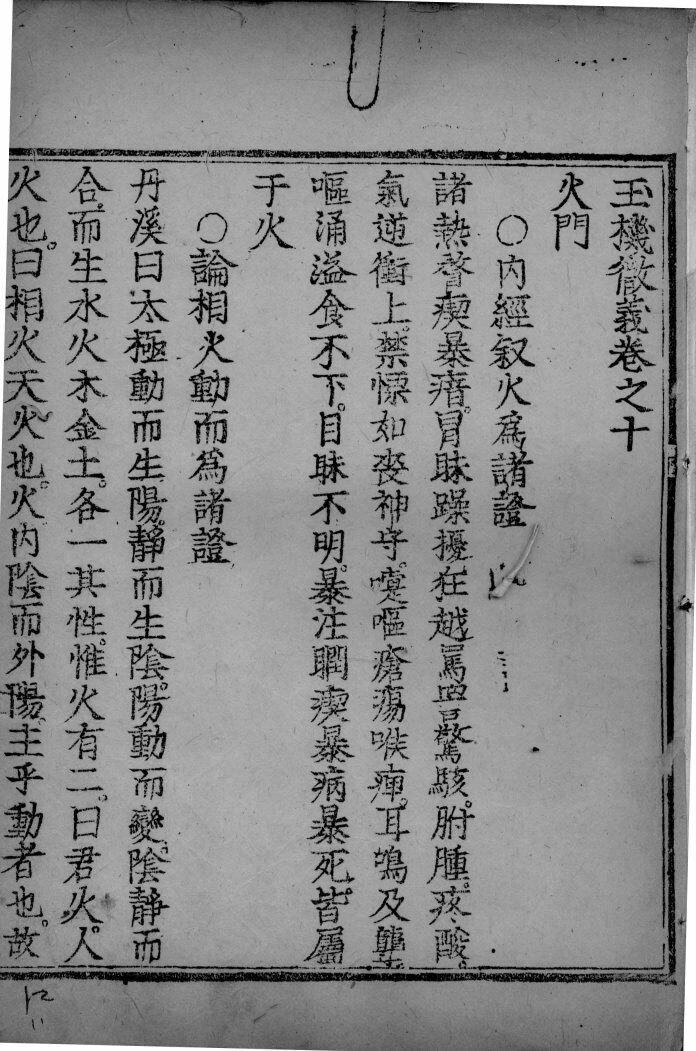 玉機微義卷之十
火門
○內經叙火爲諸證
諸熱瞀瘈暴瘖。冒眛躁擾狂越罵詈驚駭。胕腫。疼酸。
氣逆衝上。禁慄如喪神守。嚏嘔瘡瘍喉痺。耳鳴及聾
嘔涌溢食不下。目眛不明。暴注瞤瘈暴病暴死。皆屬
于火
○論相火動而爲諸證
丹溪曰太極動而生陽。靜而生陰。陽動而變。陰靜而
合。而生水火木金土。各一其性。惟火有二。曰君火。人
火也。曰相火天火也。火內陰而外陽。主乎動者也。故